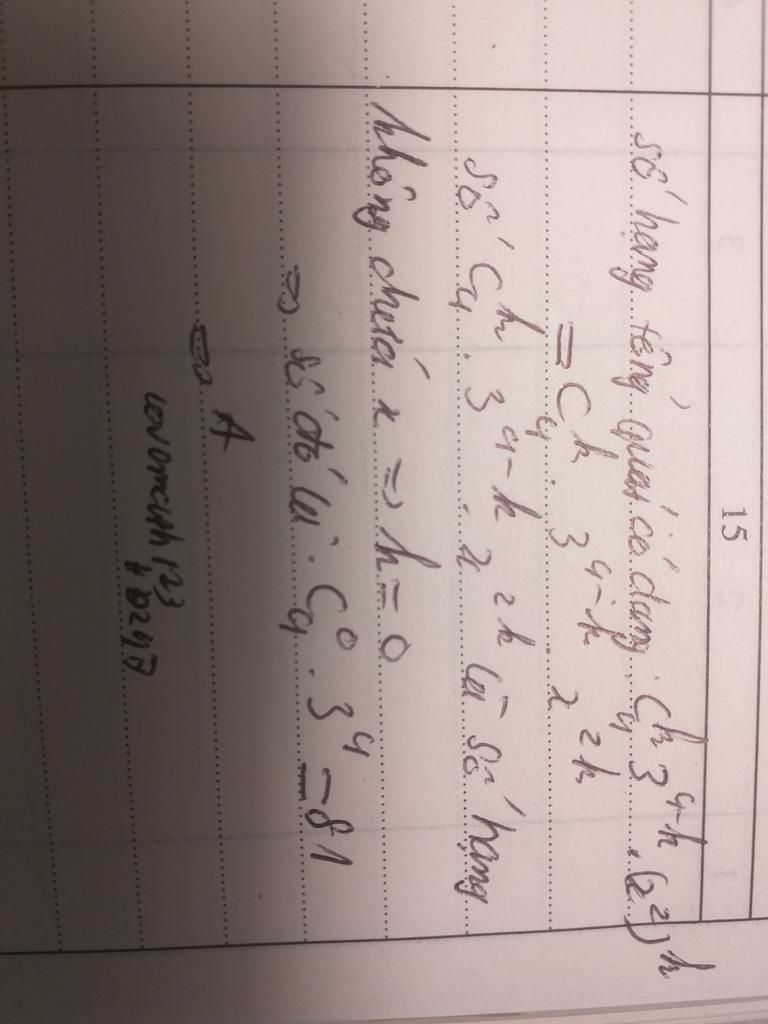 15
Số hạng tổng quát có dạng. C₄ᵏ 3⁴⁻ᵏ . (x²)ᵏ
= C₄ᵏ . 3⁴⁻ᵏ x²ᵏ
Số C₄ᵏ . 3⁴⁻ᵏ . x²ᵏ là số hạng
không chứa x => k = 0
=> số đó là . C₄⁰ . 3⁴ = 81
=> A